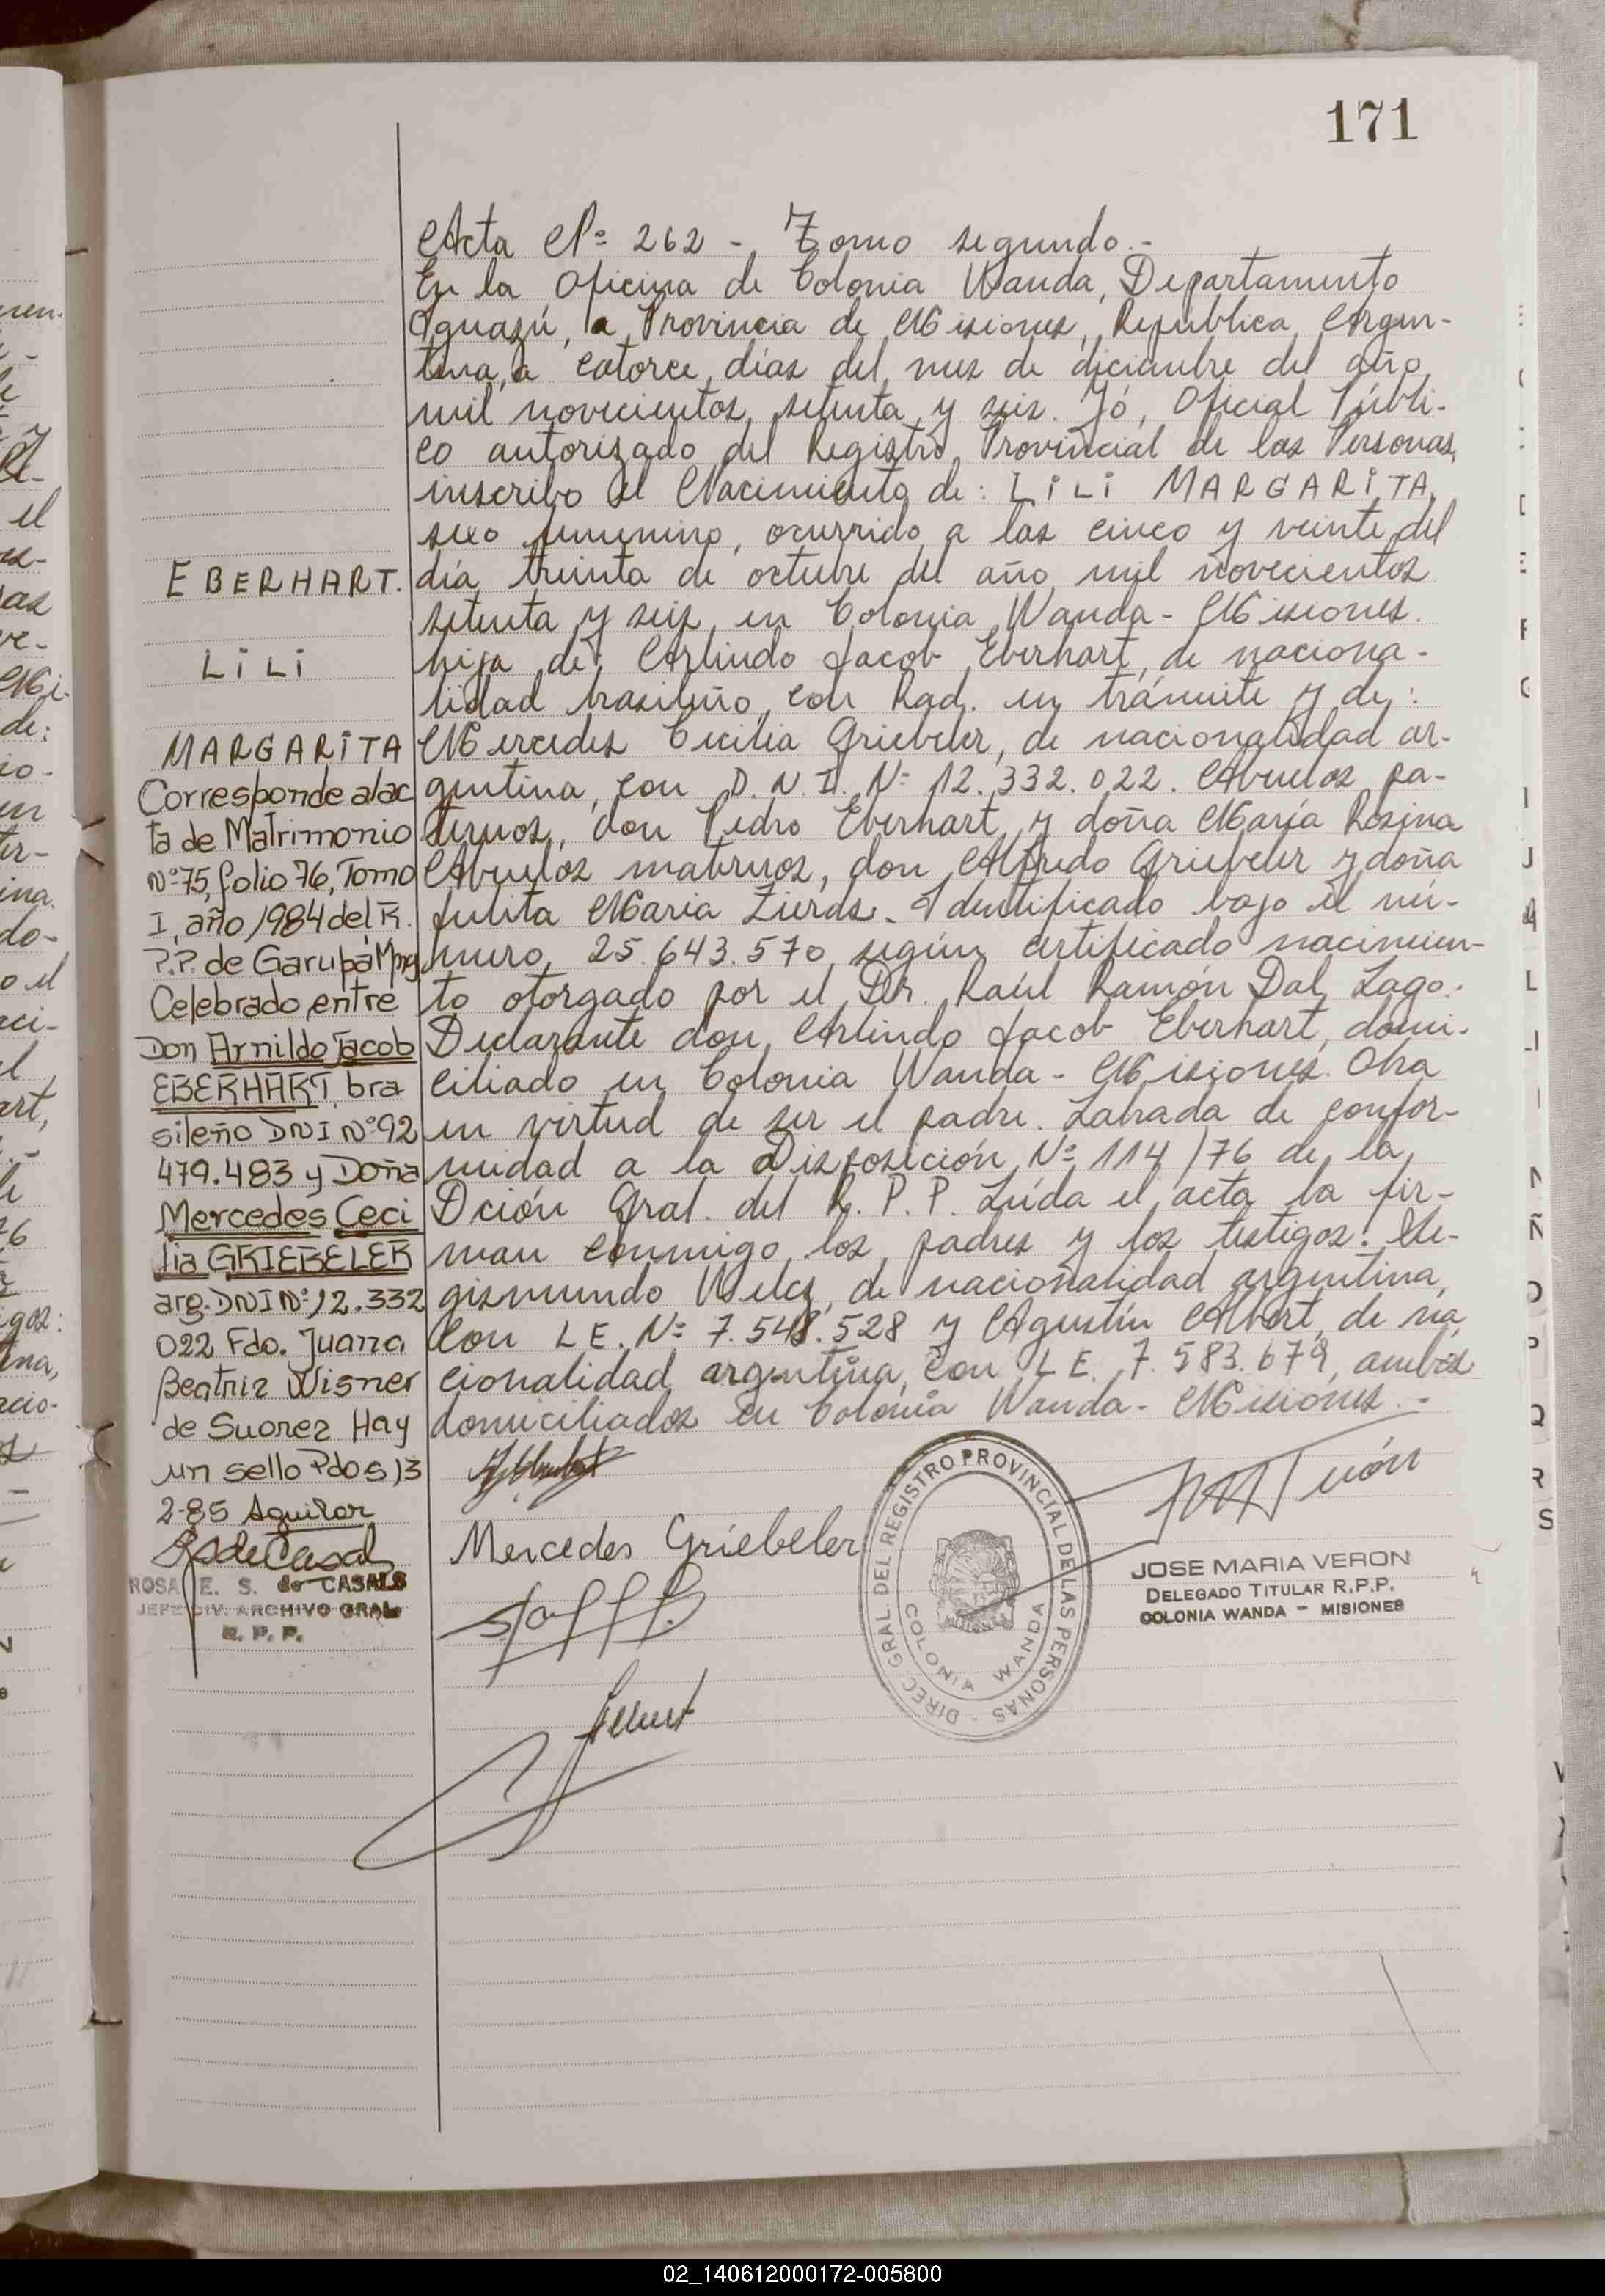 171
Acta Nº 262 - Tomo segundo.-
En la Oficina de Colonia Wanda, Departamento
Iguazú, a Provincia de Misiones, República Argen-
tina, a catorce días del mes de diciembre del año
mil novecientos setenta y seis. Yó, Oficial Públi-
co autorizado del Registro Provincial de las Personas,
inscribo el Nacimiento de: LiLi MARGARiTA,
sexo femenino, ocurrido a las cinco y veinte del
día treinta de octubre del año mil novecientos
setenta y seis, en Colonia Wanda - Misiones.
hija de: Arlindo Jacob Eberhart, de naciona-
lidad brasileño, con Rad. en trámite y de:
Mercedes Cecilia Griebeler, de nacionalidad ar-
gentina, con D.N.I. Nº 12.332.022. Abuelos pa-
ternos, don Pedro Eberhart y doña María Rosina
Abuelos maternos, don Alfredo Griebeler y doña
Julita Maria Zierds. Identificado bajo el nú-
mero 25.643.570 según certificado nacimien-
to otorgado por el Dr. Raúl Ramón Dal Lago.
Declarante don, Arlindo Jacob Eberhart, domi-
ciliado en Colonia Wanda - Misiones. Obra
en virtud de ser el padre. Labrada de confor-
midad a la Disposición Nº 114/76 de la
Dción Gral. del R.P.P. Leída el acta la fir-
man conmigo los padres y los testigos: Se-
gismundo Welcz, de nacionalidad argentina,
con L.E. Nº 7.548.528 y Agustín Albert, de na
cionalidad argentina, con L.E. 7.583.679, ambos
domiciliados en Colonia Wanda - Misiones.-
EBERHART.
LiLi
MARGARiTA
Corresponde alac
ta de Matrimonio
Nº75, folio 76, Tomo
I, año 1984 del R.
P.P. de Garupá Mnes
Celebrado entre
Don Arnildo Jacob
EBERHART, bra
sileño DNI Nº 92
479.483 y Doña
Mercedes Ceci
lia GRIEBELER
arg. DNI Nº 12.332
022 Fdo. Juana
Beatriz Wisner
de Suarez Hay
un sello Pdos 13
2-85 Aguilar
ROSA E. S. de CASALS
JEFE DIV. ARCHIVO GRAL
R. P. P.
Mercedes Griebeler
DIREC GRAL. DEL REGISTRO PROVINCIAL DE LAS PERSONAS -
COLONIA WANDA
JOSE MARIA VERON
DELEGADO TITULAR R.P.P.
COLONIA WANDA - MISIONES
02_140612000172-005800